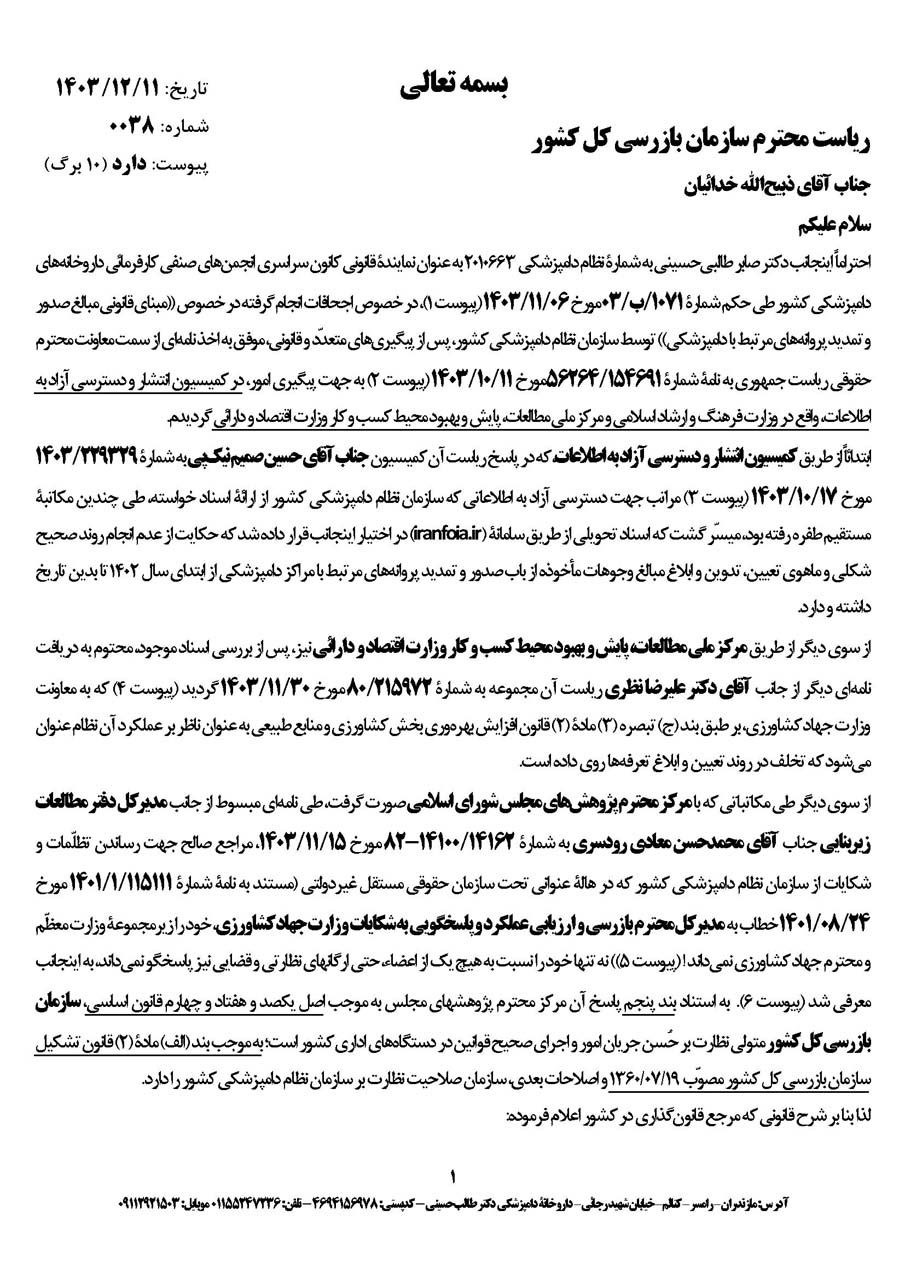 بسمه تعالی
تاریخ: ۱۴۰۳/۱۲/۱۱
شماره: ۰۰۳۸
پیوست: دارد (۱۰ برگ)
ریاست محترم سازمان بازرسی کل کشور
جناب آقای ذبیح‌الله خدائیان
سلام علیکم
احتراماً اینجانب دکتر صابر طالبی‌حسینی به شمارهٔ نظام دامپزشکی ۲۰۱۰۶۶۳ به عنوان نمایندهٔ قانونی کانون سراسری انجمن‌های صنفی کارفرمائی داروخانه‌های
دامپزشکی کشور طی حکم شمارهٔ ۱۰۷۱/ب/۰۳ مورخ ۱۴۰۳/۱۱/۰۶ (پیوست ۱)، در خصوص اجحافات انجام گرفته در خصوص ((مبنای قانونی مبالغ صدور
و تمدید پروانه‌های مرتبط با دامپزشکی)) توسط سازمان نظام دامپزشکی کشور، پس از پیگیری‌های متعدّد و قانونی، موفق به اخذ نامه‌ای از سمت معاونت محترم
حقوقی ریاست جمهوری به نامهٔ شمارهٔ ۵۶۲۶۴/۱۵۴۶۹۱ مورخ ۱۴۰۳/۱۰/۱۱ (پیوست ۲) به جهت پیگیری امور، در کمیسیون انتشار و دسترسی آزاد به
اطلاعات، واقع در وزارت فرهنگ و ارشاد اسلامی و مرکز ملی مطالعات، پایش و بهبود محیط کسب و کار وزارت اقتصاد و دارائی گردیدم.
ابتدائاً از طریق کمیسیون انتشار و دسترسی آزاد به اطلاعات، که در پاسخ ریاست آن کمیسیون جناب آقای حسین صمیم نیک‌پی به شمارهٔ ۱۴۰۳/۲۲۹۳۲۹
مورخ ۱۴۰۳/۱۰/۱۷ (پیوست ۳) مراتب جهت دسترسی آزاد به اطلاعاتی که سازمان نظام دامپزشکی کشور از ارائهٔ اسناد خواسته، طی چندین مکاتبهٔ
مستقیم طفره رفته بود، میسّر گشت که اسناد تحویلی از طریق سامانهٔ (iranfoia.ir) در اختیار اینجانب قرار داده شد که حکایت از عدم انجام روند صحیح
شکلی و ماهوی تعیین، تدوین و ابلاغ مبالغ وجوهات مأخوذه از باب صدور و تمدید پروانه‌های مرتبط با مراکز دامپزشکی از ابتدای سال ۱۴۰۲ تا بدین تاریخ
داشته و دارد.
از سوی دیگر از طریق مرکز ملی مطالعات، پایش و بهبود محیط کسب و کار وزارت اقتصاد و دارائی نیز، پس از بررسی اسناد موجود، محتوم به دریافت
نامه‌ای دیگر از جانب آقای دکتر علیرضا نظری ریاست آن مجموعه به شمارهٔ ۸۰/۲۱۵۹۷۲ مورخ ۱۴۰۳/۱۱/۳۰ گردید (پیوست ۴) که به معاونت
وزارت جهاد کشاورزی، بر طبق بند (ج) تبصره (۲) مادهٔ (۲) قانون افزایش بهره‌وری بخش کشاورزی و منابع طبیعی به عنوان ناظر بر عملکرد آن نظام عنوان
می‌شود که تخلف در روند تعیین و ابلاغ تعرفه‌ها روی داده است.
از سوی دیگر طی مکاتباتی که با مرکز محترم پژوهش‌های مجلس شورای اسلامی صورت گرفت، طی نامه‌ای مبسوط از جانب مدیرکل دفتر مطالعات
زیربنایی جناب آقای محمدحسن معادی رودسری به شمارهٔ ۱۴۱۰۰/۱۴۱۶۲-۸۲ مورخ ۱۴۰۳/۱۱/۱۵، مراجع صالح جهت رساندن تظلّمات و
شکایات از سازمان نظام دامپزشکی کشور که در هالهٔ عنوانی تحت سازمان حقوقی مستقل غیردولتی (مستند به نامهٔ شمارهٔ ۱۴۰۱/۱/۱۱۵۱۱۱ مورخ
۱۴۰۱/۰۸/۲۴ خطاب به مدیرکل محترم بازرسی و ارزیابی عملکرد و پاسخگویی به شکایات وزارت جهاد کشاورزی، خود را زیرمجموعهٔ وزارت معظّم
و محترم جهاد کشاورزی نمی‌داند! (پیوست ۵)) نه تنها خود را نسبت به هیچ یک از اعضاء، حتی ارگانهای نظارتی و قضایی نیز پاسخگو نمی‌داند، به اینجانب
معرفی شد (پیوست ۶). به استناد بند پنجم پاسخ آن مرکز محترم پژوهشهای مجلس به موجب اصل یکصد و هفتاد و چهارم قانون اساسی، سازمان
بازرسی کل کشور متولی نظارت بر حُسن جریان امور و اجرای صحیح قوانین در دستگاه‌های اداری کشور است؛ به موجب بند (الف) مادهٔ (۲) قانون تشکیل
سازمان بازرسی کل کشور مصوّب ۱۳۶۰/۰۷/۱۹ و اصلاحات بعدی، سازمان صلاحیت نظارت بر سازمان نظام دامپزشکی کشور را دارد.
لذا بنا بر شرح قانونی که مرجع قانون‌گذاری در کشور اعلام فرموده:
۱
آدرس: مازندران - رامسر - کتالم - خیابان شهید رجائی - داروخانهٔ دامپزشکی دکتر طالب‌حسینی - کدپستی: ۴۶۹۴۱۵۶۹۷۸ - تلفن: ۰۱۱۵۵۲۴۷۲۳۶ موبایل: ۰۹۱۱۲۹۲۱۵۰۳